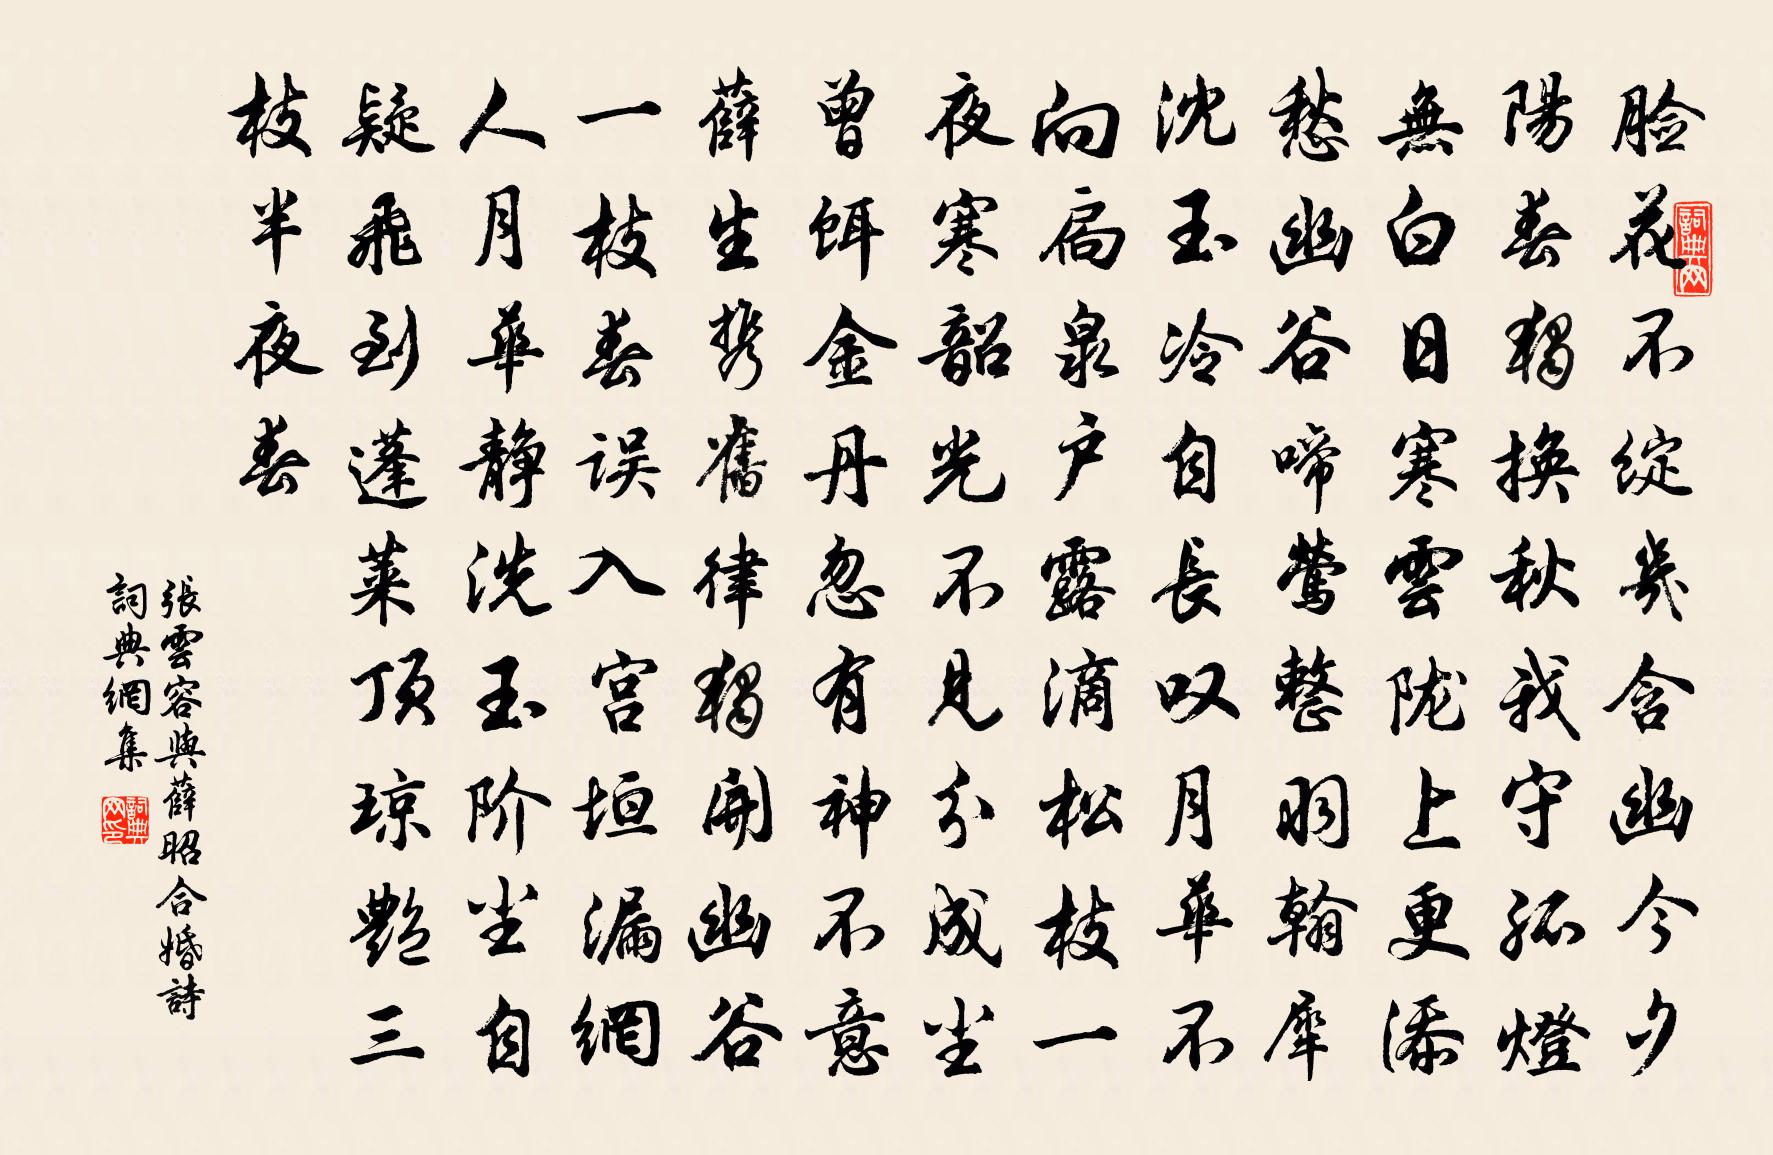 脸花不綻幾含幽今夕
陽春獨換秋我守孤燈
無白日寒雲陇上更添
愁幽谷啼莺整羽翰犀
沈玉冷自長叹月華不
向扃泉户露滴松枝一
夜寒韶光不見分成尘
曾餌金丹忽有神不意
薛生携舊律獨開幽谷
一枝春误入宫垣漏網
人月華静洗玉阶尘自
疑飛到蓬莱顶琼艷三
枝半夜春
張雲容與薛昭合婚詩
詞典網集
詞典网
詞典网印